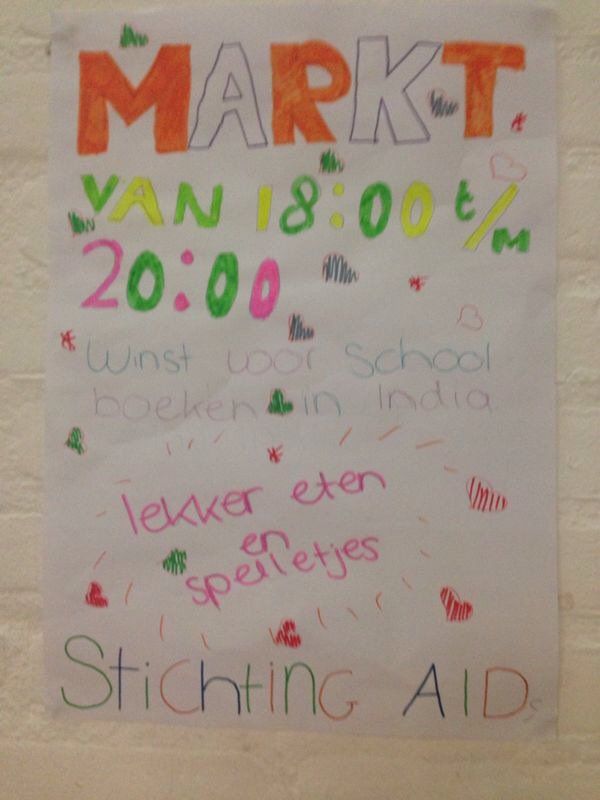 MARKT
VAN 18:00 t/m
20:00
Winst voor School
boeken in India
lekker eten
en
spelletjes
Stichting AIDs